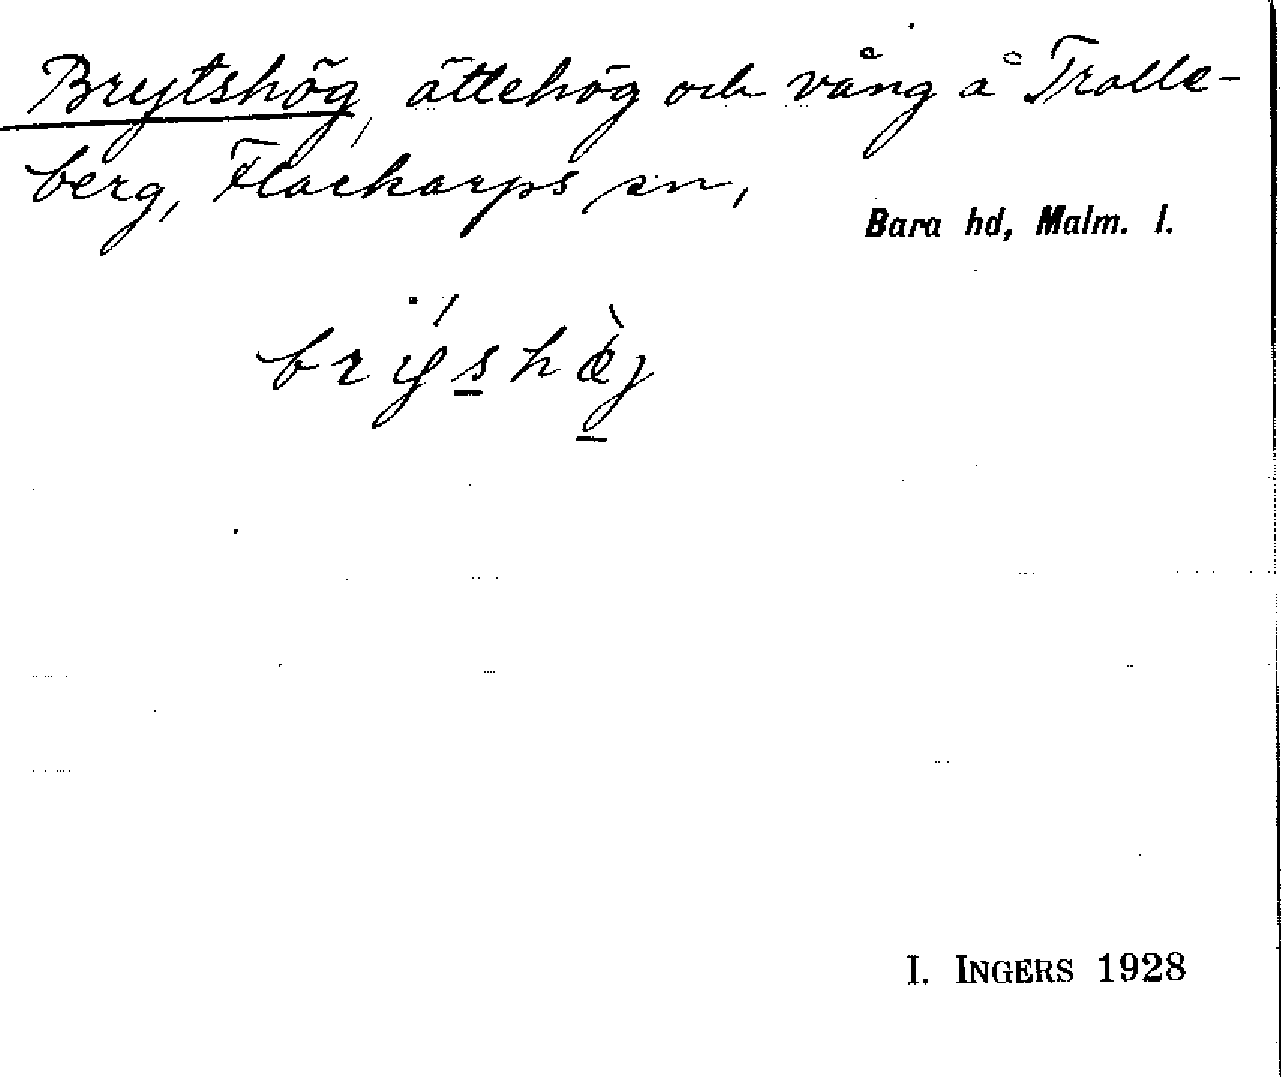 Brytshög, ättehög och vång å Trolle-
berg, Flackarps sn,
Bara hd, Malm. l.
brýs̲hæ̀j
I. INGERS 1928